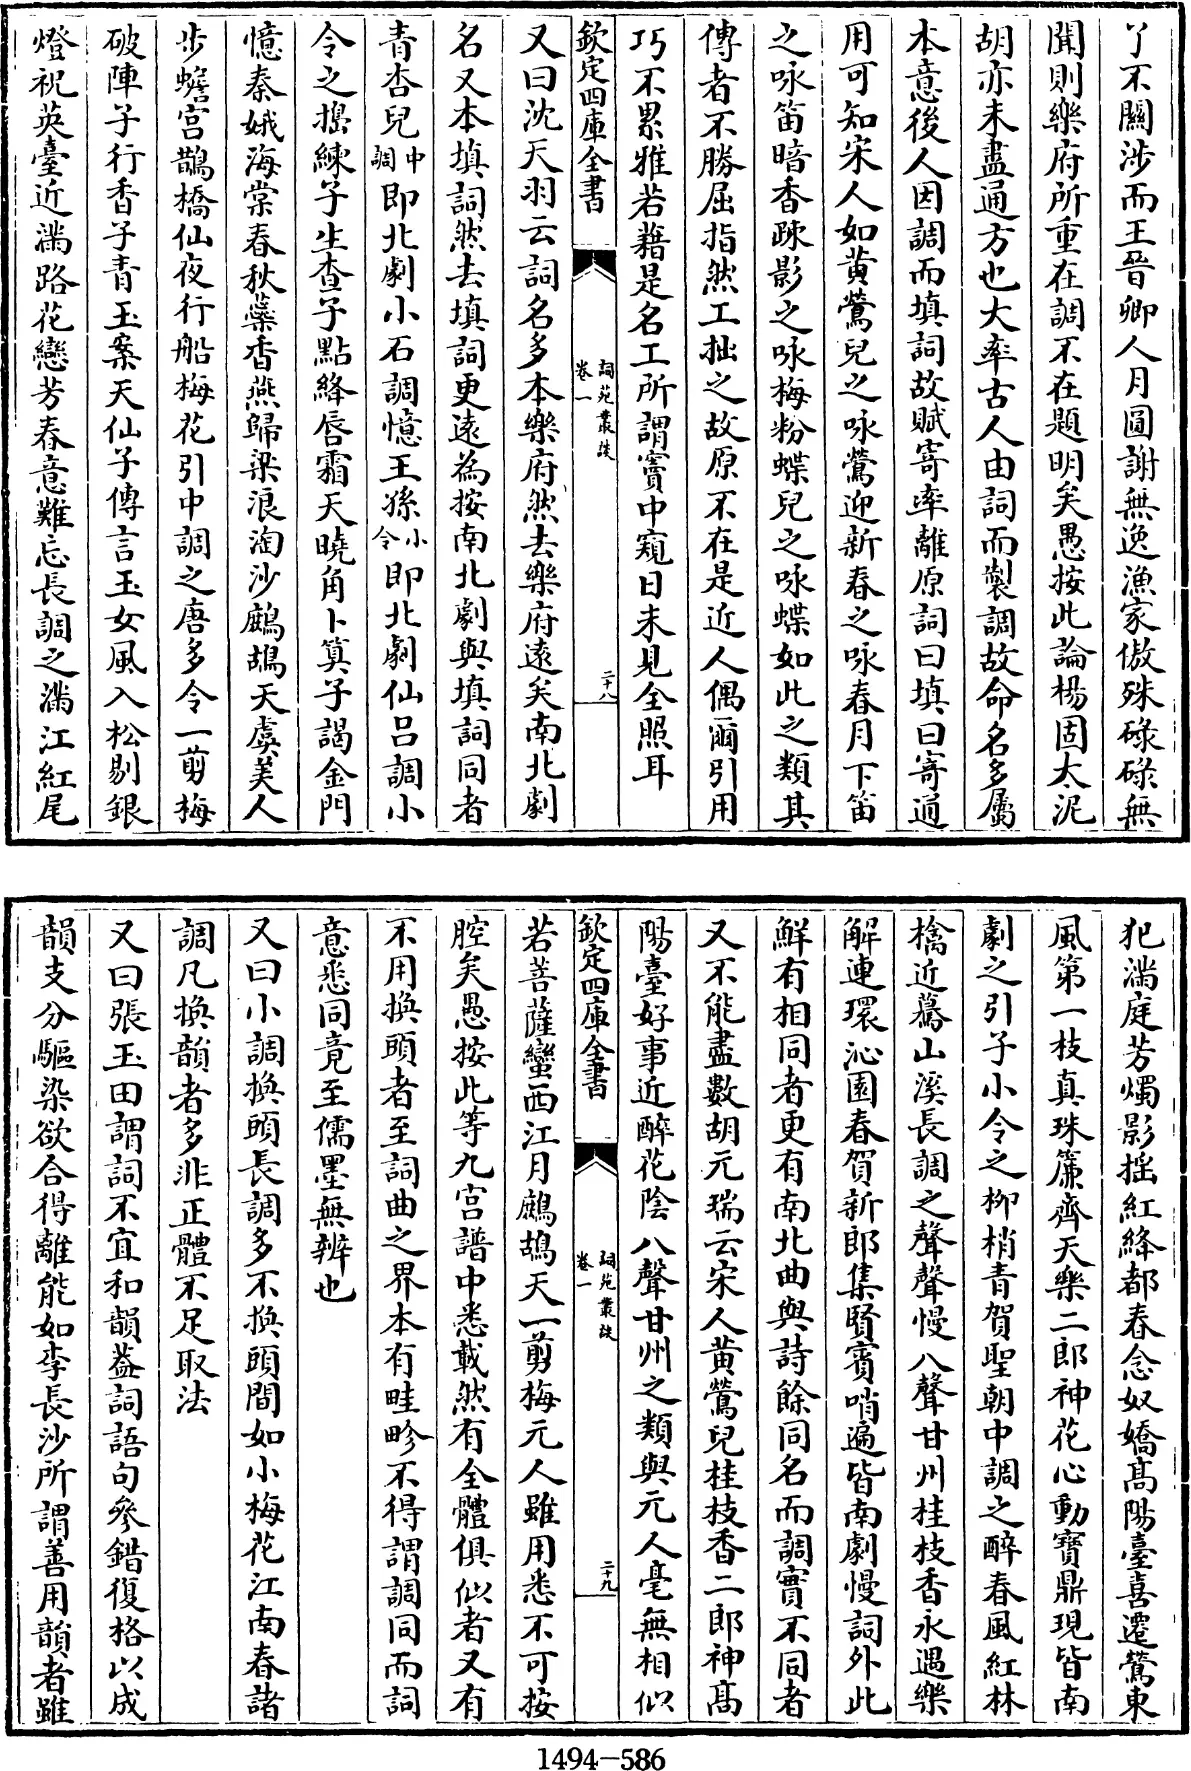 了不關涉而王晉卿人月圓謝無逸漁家傲殊碌碌無
聞則樂府所重在調不在題明矣愚按此論楊固太泥
胡亦未盡通方也大率古人由詞而製調故命名多屬
本意後人因調而填詞故賦寄率離原詞曰填曰寄通
用可知宋人如黃鶯兒之咏鶯迎新春之咏春月下笛
之咏笛暗香疎影之咏梅粉蝶兒之咏蝶如此之類其
傳者不勝屈指然工拙之故原不在是近人偶爾引用
巧不累雅若藉是名工所謂竇中窺日未見全照耳
欽定四庫全書
詞苑叢談
卷一
二十八
又曰沈天羽云詞名多本樂府然去樂府遠矣南北劇
名又本填詞然去填詞更遠為按南北劇與填詞同者
青杏兒中調即北劇小石調憶王孫小令即北劇仙呂調小
令之搗練子生查子點絳唇霜天曉角卜算子謁金門
憶秦娥海棠春秋蘂香燕歸梁浪淘沙鷓鴣天虞美人
步蟾宮鵲橋仙夜行船梅花引中調之唐多令一剪梅
破陣子行香子青玉案天仙子傳言玉女風入松剔銀
燈祝英臺近滿路花戀芳春意難忘長調之滿江紅尾
犯滿庭芳燭影搖紅絳都春念奴嬌高陽臺喜遷鶯東
風第一枝真珠簾齊天樂二郎神花心動寶鼎現皆南
劇之引子小令之柳梢青賀聖朝中調之醉春風紅林
檎近驀山溪長調之聲聲慢八聲甘州桂枝香永遇樂
解連環沁園春賀新郎集賢賓哨遍皆南劇慢詞外此
鮮有相同者更有南北曲與詩餘同名而調實不同者
又不能盡數胡元瑞云宋人黃鶯兒桂枝香二郎神高
陽臺好事近醉花陰八聲甘州之類與元人毫無相似
欽定四庫全書
詞苑叢談
卷一
二十九
若菩薩蠻西江月鷓鴣天一剪梅元人雖用悉不可按
腔矣愚按此等九宮譜中悉載然有全體俱似者又有
不用換頭者至詞曲之界本有畦畛不得謂調同而詞
意悉同竟至儒墨無辨也
又曰小調換頭長調多不換頭間如小梅花江南春諸
調凡換韻者多非正體不足取法
又曰張玉田謂詞不宜和韻葢詞語句參錯復格以成
韻支分驅染欲合得離能如李長沙所謂善用韻者雖
1494-586